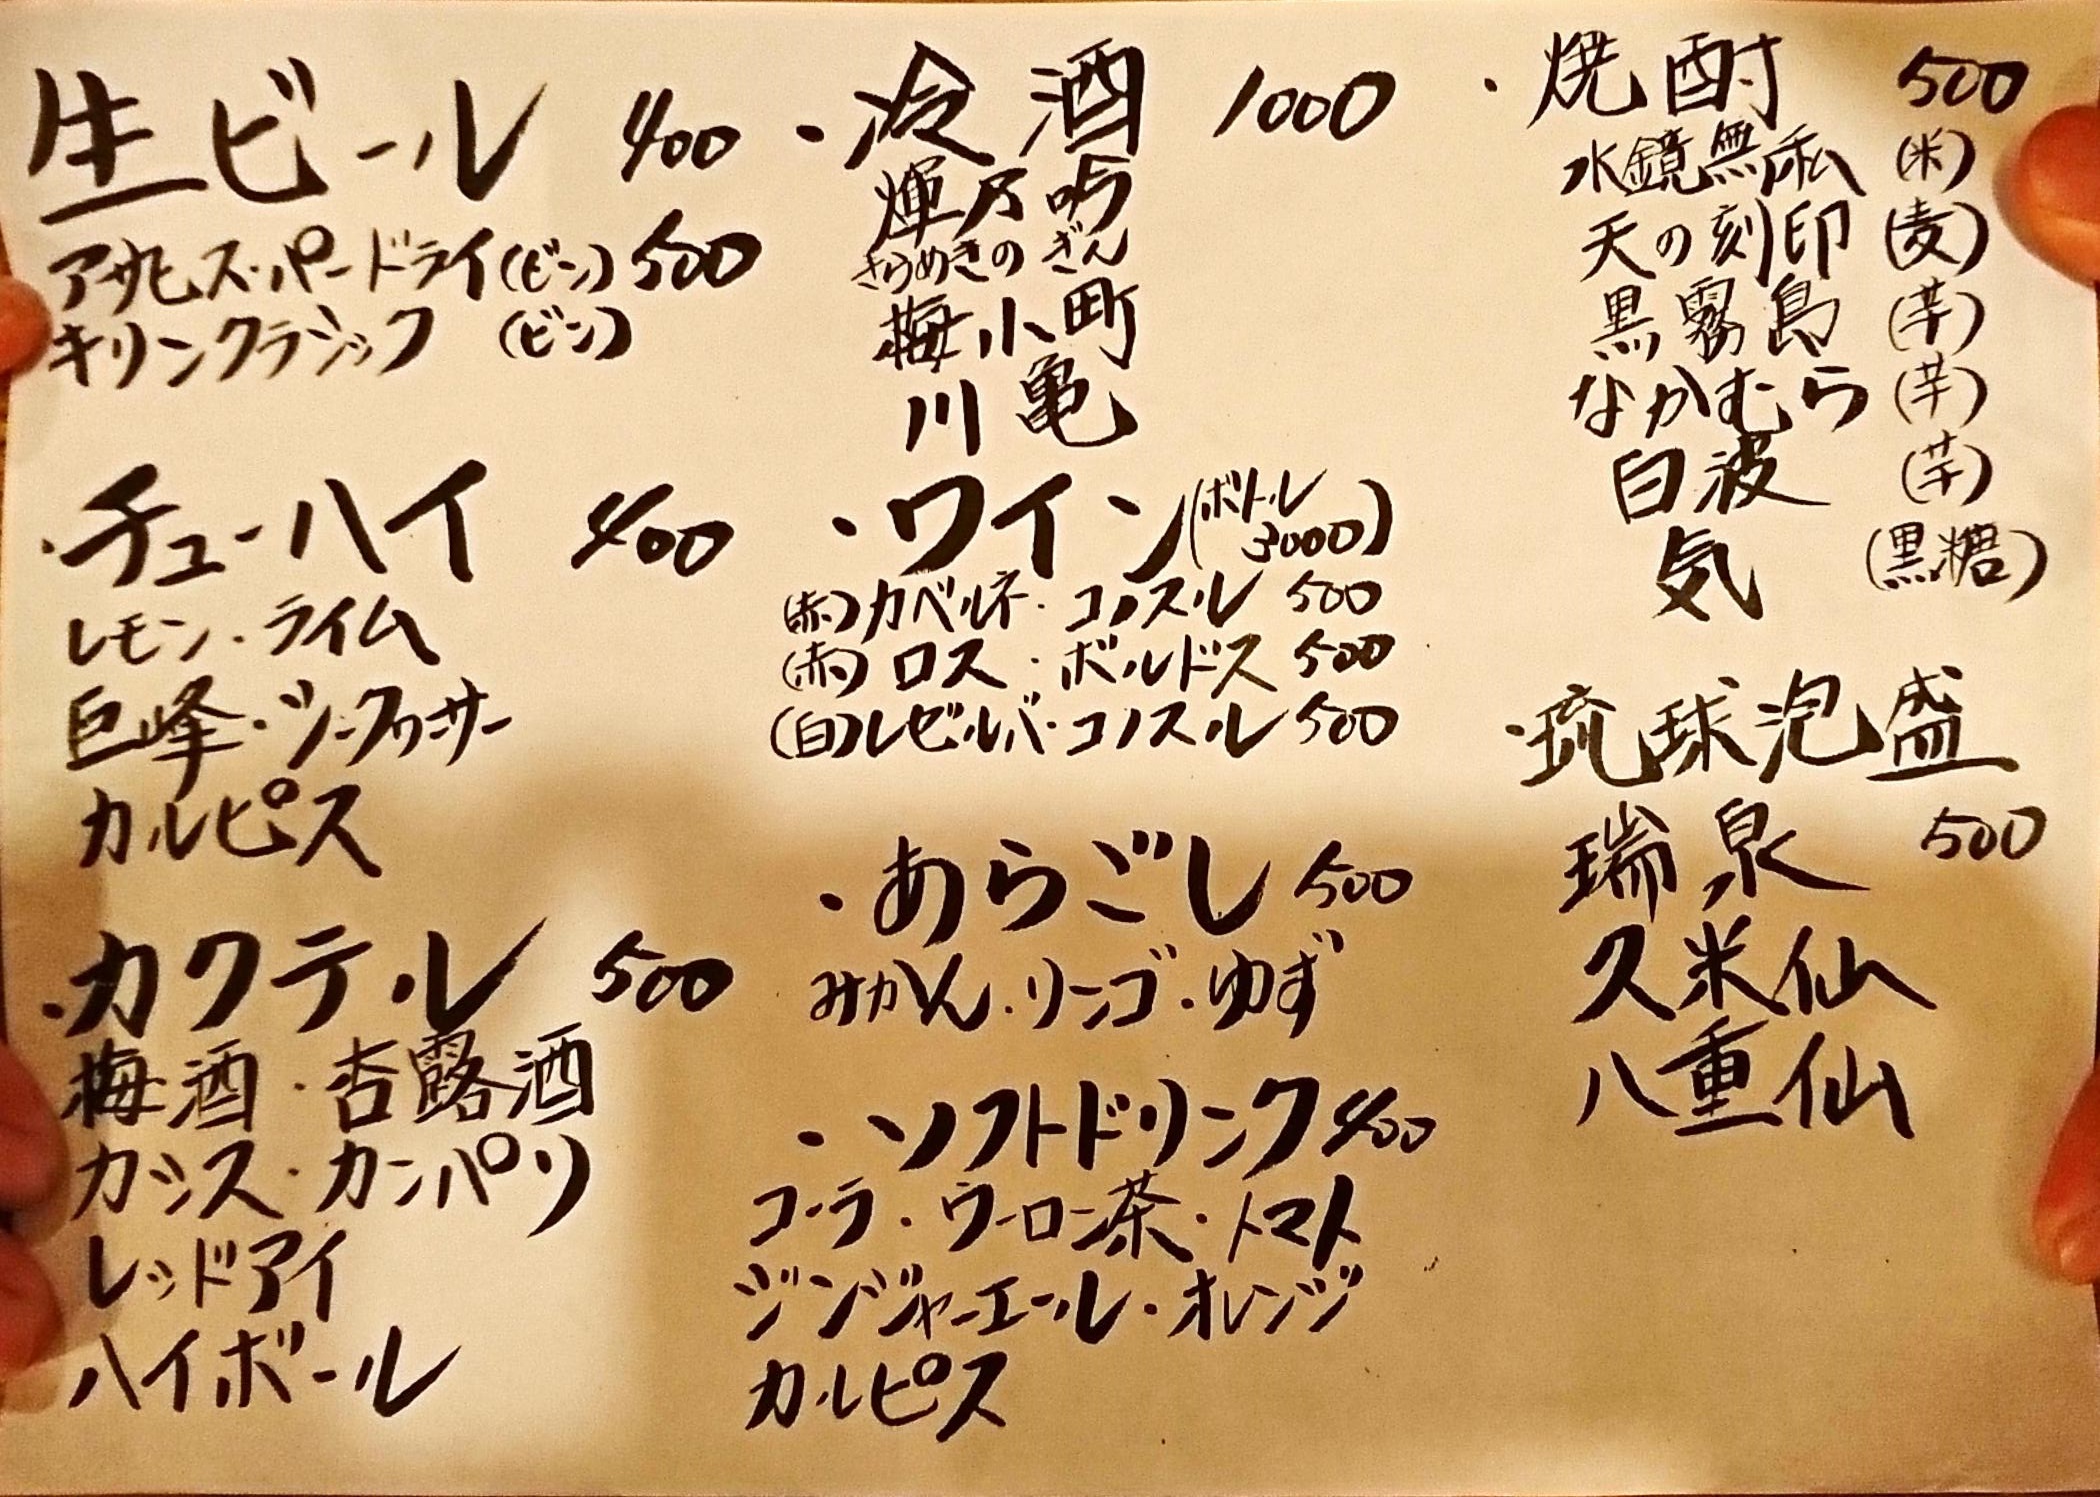 生ビール 400
アサヒスーパードライ(ビン) 500
キリンクラシック (ビン)
・チューハイ 400
レモン・ライム
巨峰・シークヮーサー
カルピス
・カクテル 500
梅酒・杏露酒
カシス・カンパリ
レッドアイ
ハイボール
・冷酒 1000
輝乃吟
きらめきの ぎん
梅小町
川亀
・ワイン(ボトル 3000)
(赤)カベルネ・コノスル 500
(赤)ロス・ボルドス 500
(白)レゼルバ・コノスル 500
・あらごし 500
みかん・リンゴ・ゆず
・ソフトドリンク 400
コーラ・ウーロン茶・トマト
ジンジャーエール・オレンジ
カルピス
・焼酎 500
水鏡無私 (米)
天の刻印 (麦)
黒霧島 (芋)
なかむら (芋)
白波 (芋)
気 (黒糖)
・琉球泡盛
瑞泉 500
久米仙
八重仙